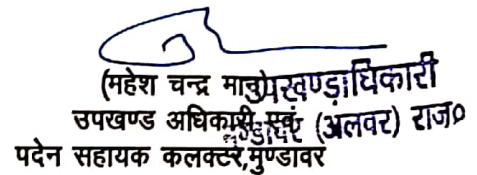 (महेश चन्द्र मान)
उपखण्डाधिकारी
उपखण्ड अधिकारी एवं
मुण्डावर (अलवर) राज०
पदेन सहायक कलक्टर,मुण्डावर